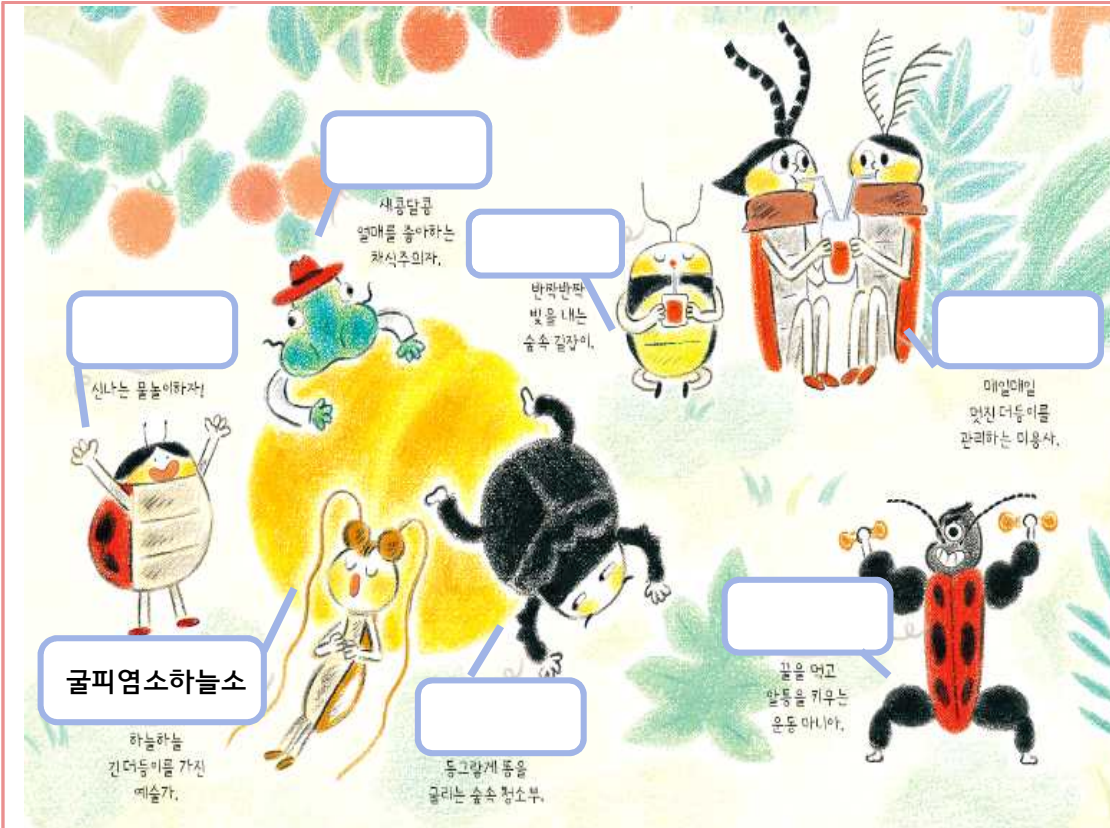 새콩달콩
열매를 좋아하는
채식주의자.
반짝반짝
빛을 내는
숲속 길잡이.
신나는 물놀이하자!
매일매일
멋진 더듬이를
관리하는 미용사.
굴피염소하늘소
하늘하늘
긴 더듬이를 가진
예술가.
동그랗게 똥을
굴리는 숲속 청소부.
꿀을 먹고
알통을 키우는
운동 마니아.